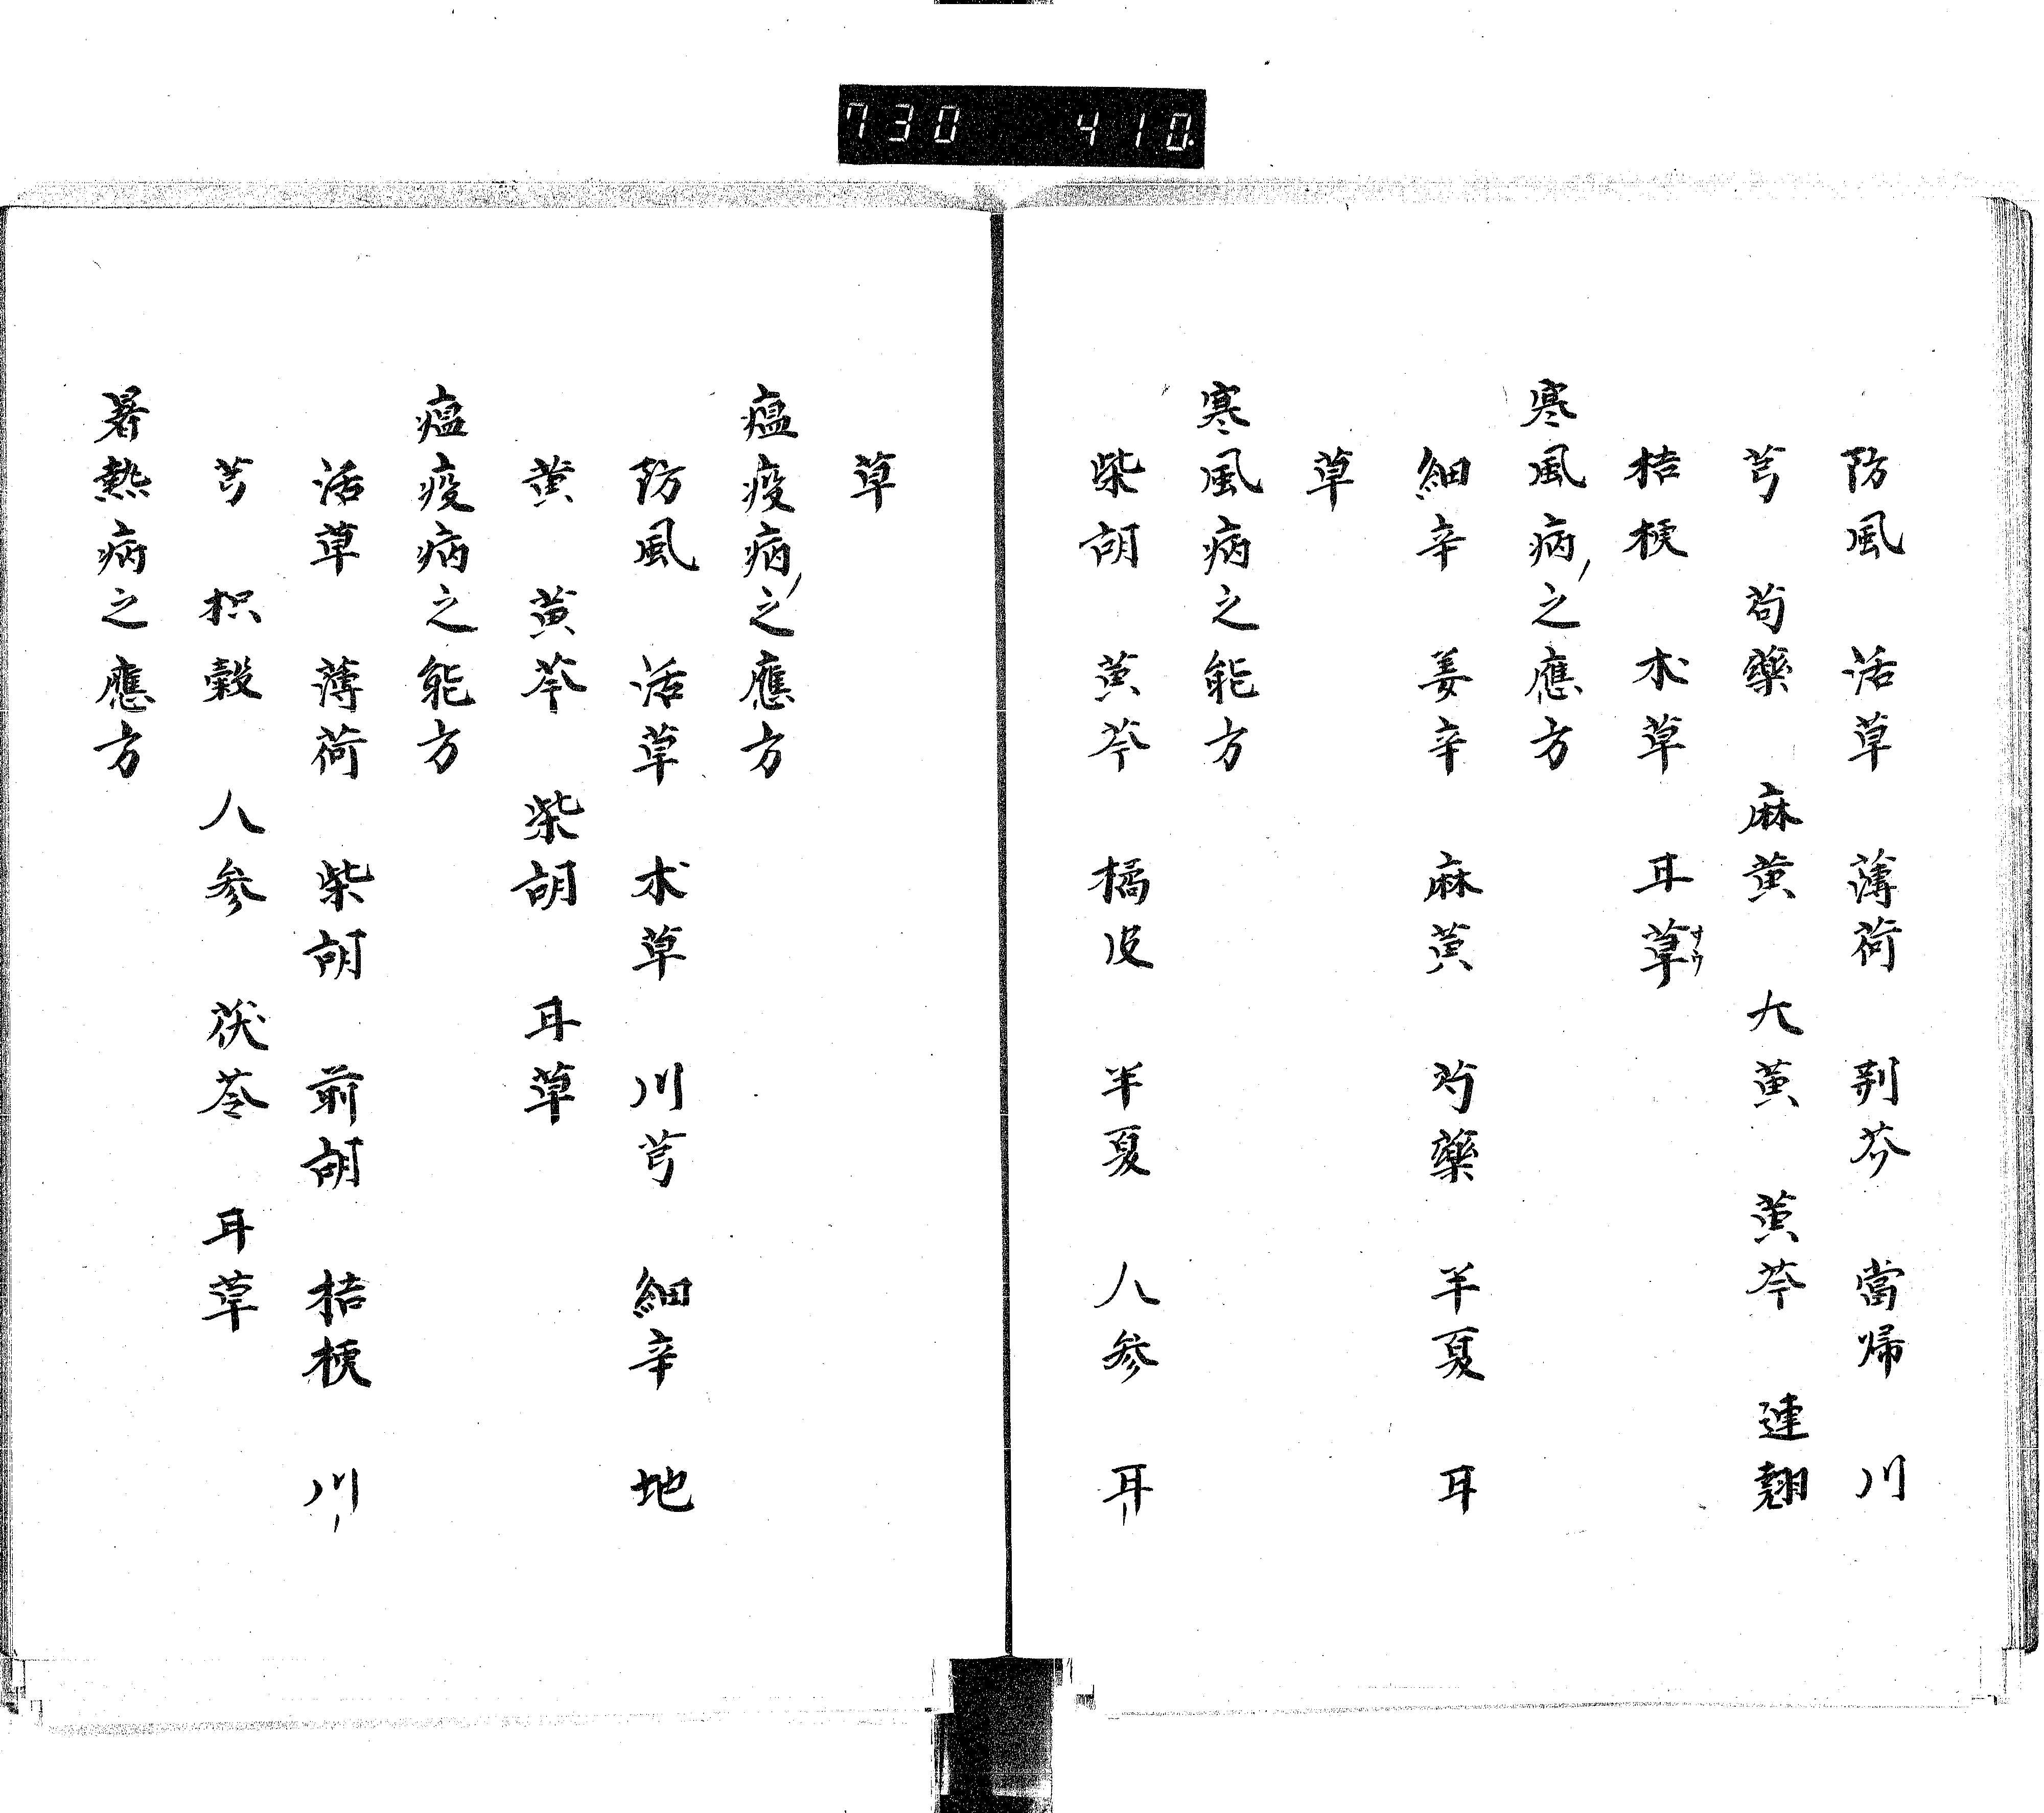 730 410.
防風 活草 薄荷 荆芥 當帰 川
芎 芶藥 麻黄 大黄 黄芩 連翹
桔梗 木草 耳草サウ
寒風病之應方
細辛 姜辛 麻黄 芍藥 半夏 耳
草
寒風病之能方
柴胡 黄芩 橘皮 半夏 人参 耳
草
瘟疫病之應方
防風 活草 木草 川芎 細辛 地
黄 黄芩 柴胡 耳草
瘟疫病之能方
活草 薄荷 柴胡 前胡 桔梗 川
芎 枳穀 人参 茯苓 耳草
暑熱病之應方